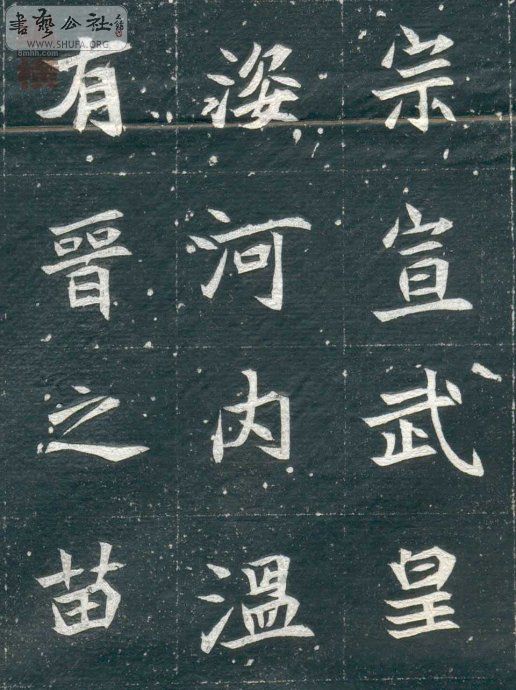 書藝公社
WWW.SHUFA.ORG
8mhh.com
宗宣武皇
姿河内溫
有晉之苗